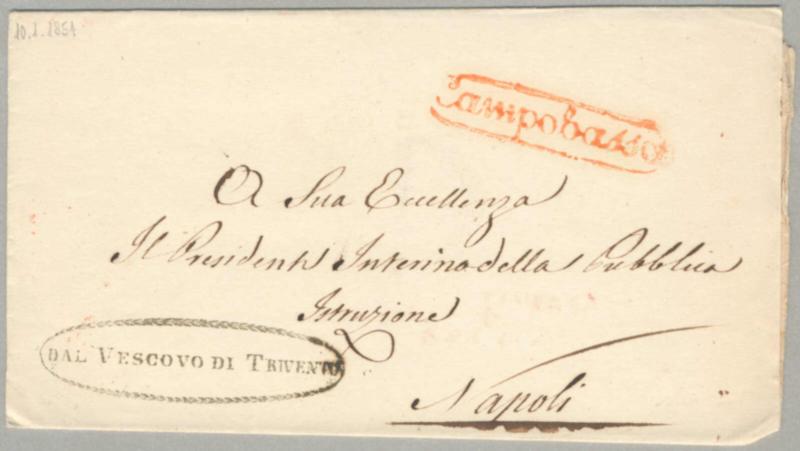 10.1.1851
Campobasso
A Sua Eccellenza
Il Presidente Interino della Pubblica
Istruzione
DAL VESCOVO DI TRIVENTO
Napoli